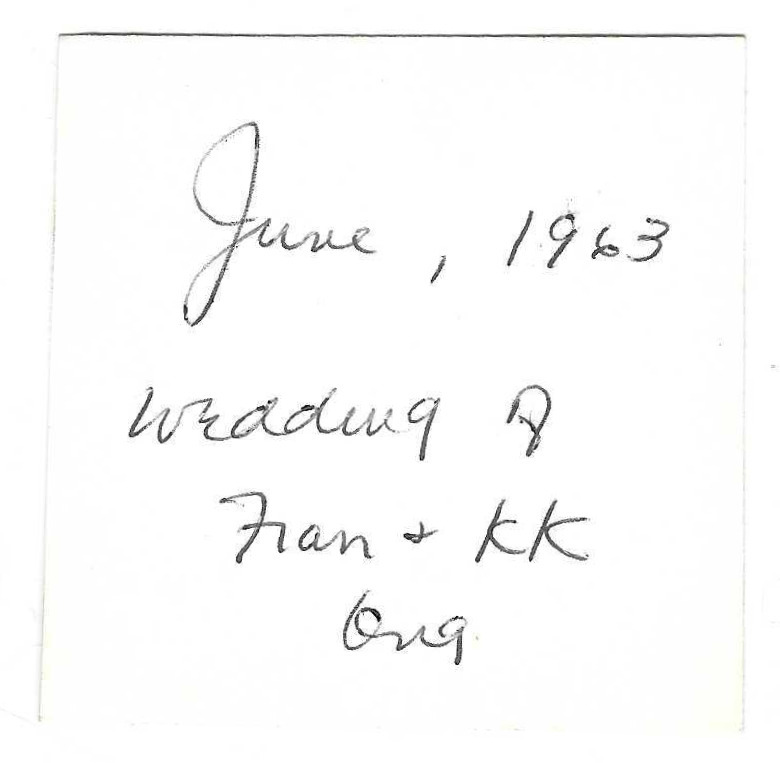 June, 1963
Wedding of
Fran + KK
Ong